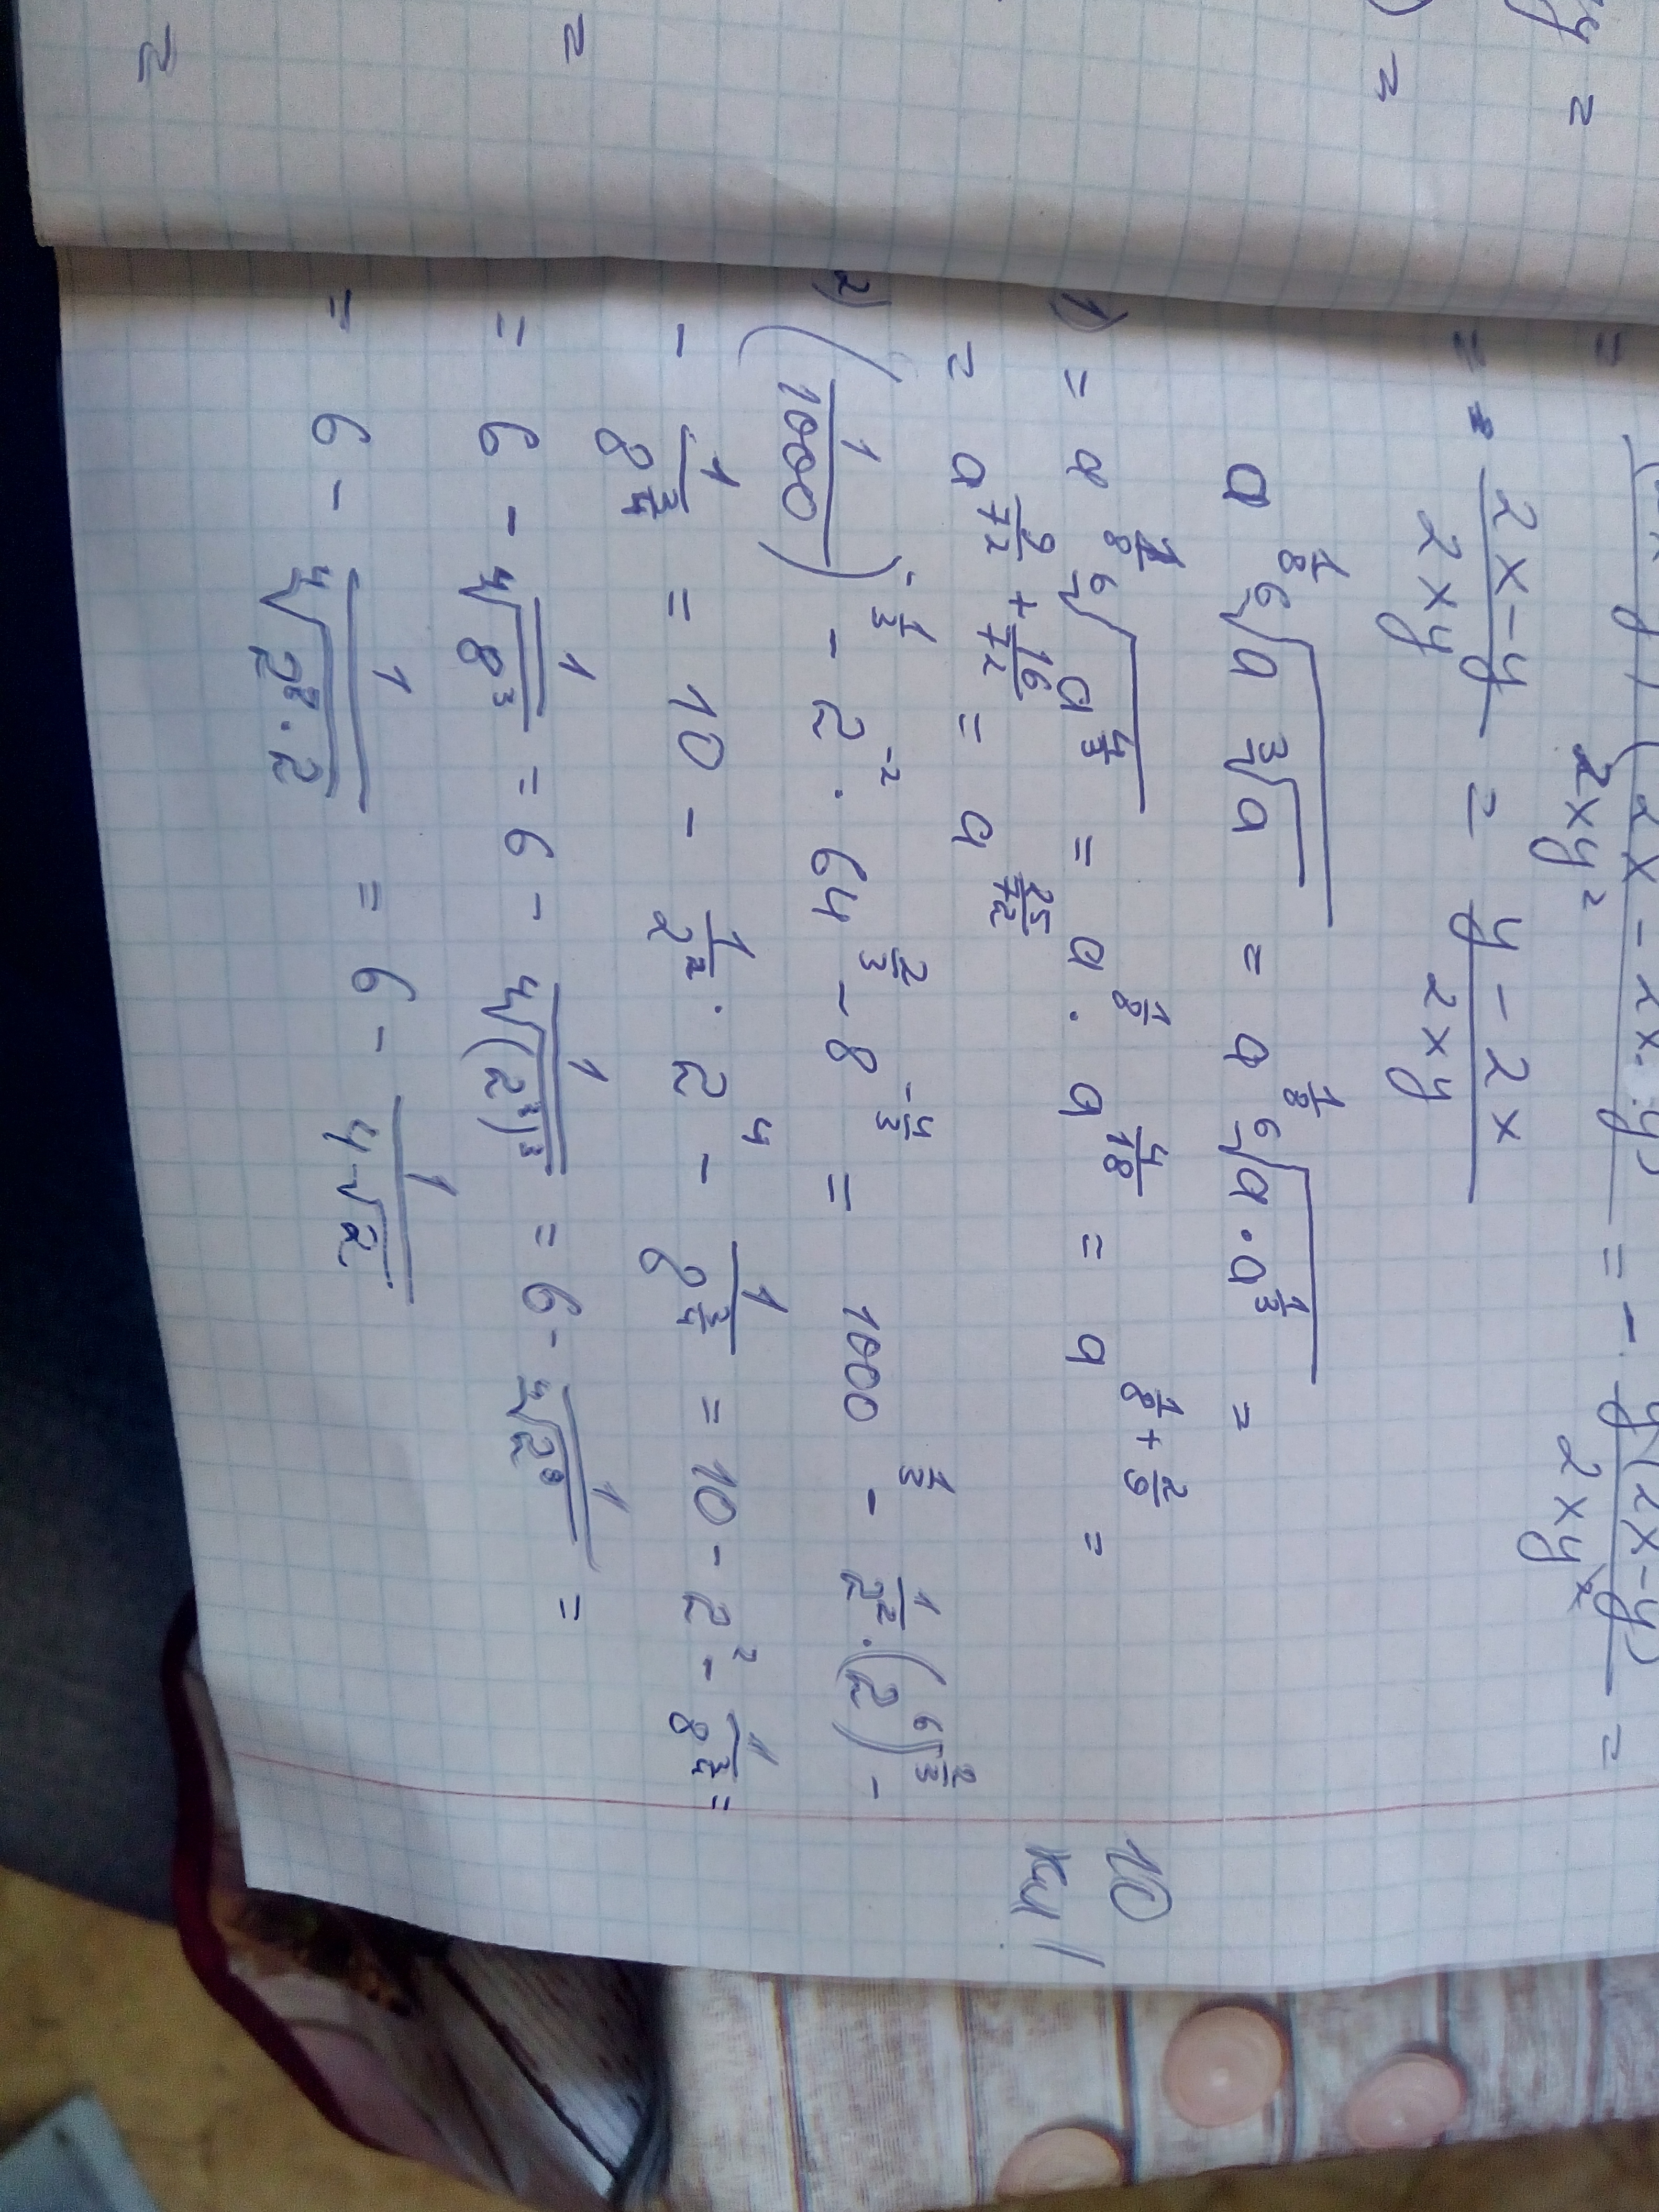 = =
2x-y/2xy = y-2x/2xy
a^(1/8) ⁶√(a ³√a) = a^(1/8) ⁶√(a·a^(1/3)) =
1) = a^(1/8) ⁶√(a^(4/3)) = a^(1/8) · a^(4/18) = a^(1/8 + 2/9) =
= a^(9/72 + 16/72) = a^(25/72)
2) (1/1000)^(-1/3) - 2^(-2) · 64^(2/3) - 8^(-4/3) = 1000^(1/3) - 1/2² · (2⁶)^(2/3) -
- 1/8^(3/4) = 10 - 1/2² · 2⁴ - 1/8^(3/4) = 10 - 2² - 1/8^(3/4) =
= 6 - 1/⁴√(8³) = 6 - 1/⁴√((2³)³) = 6 - 1/⁴√(2⁹) =
= 6 - 1/⁴√(2⁸·2) = 6 - 1/4√2
10